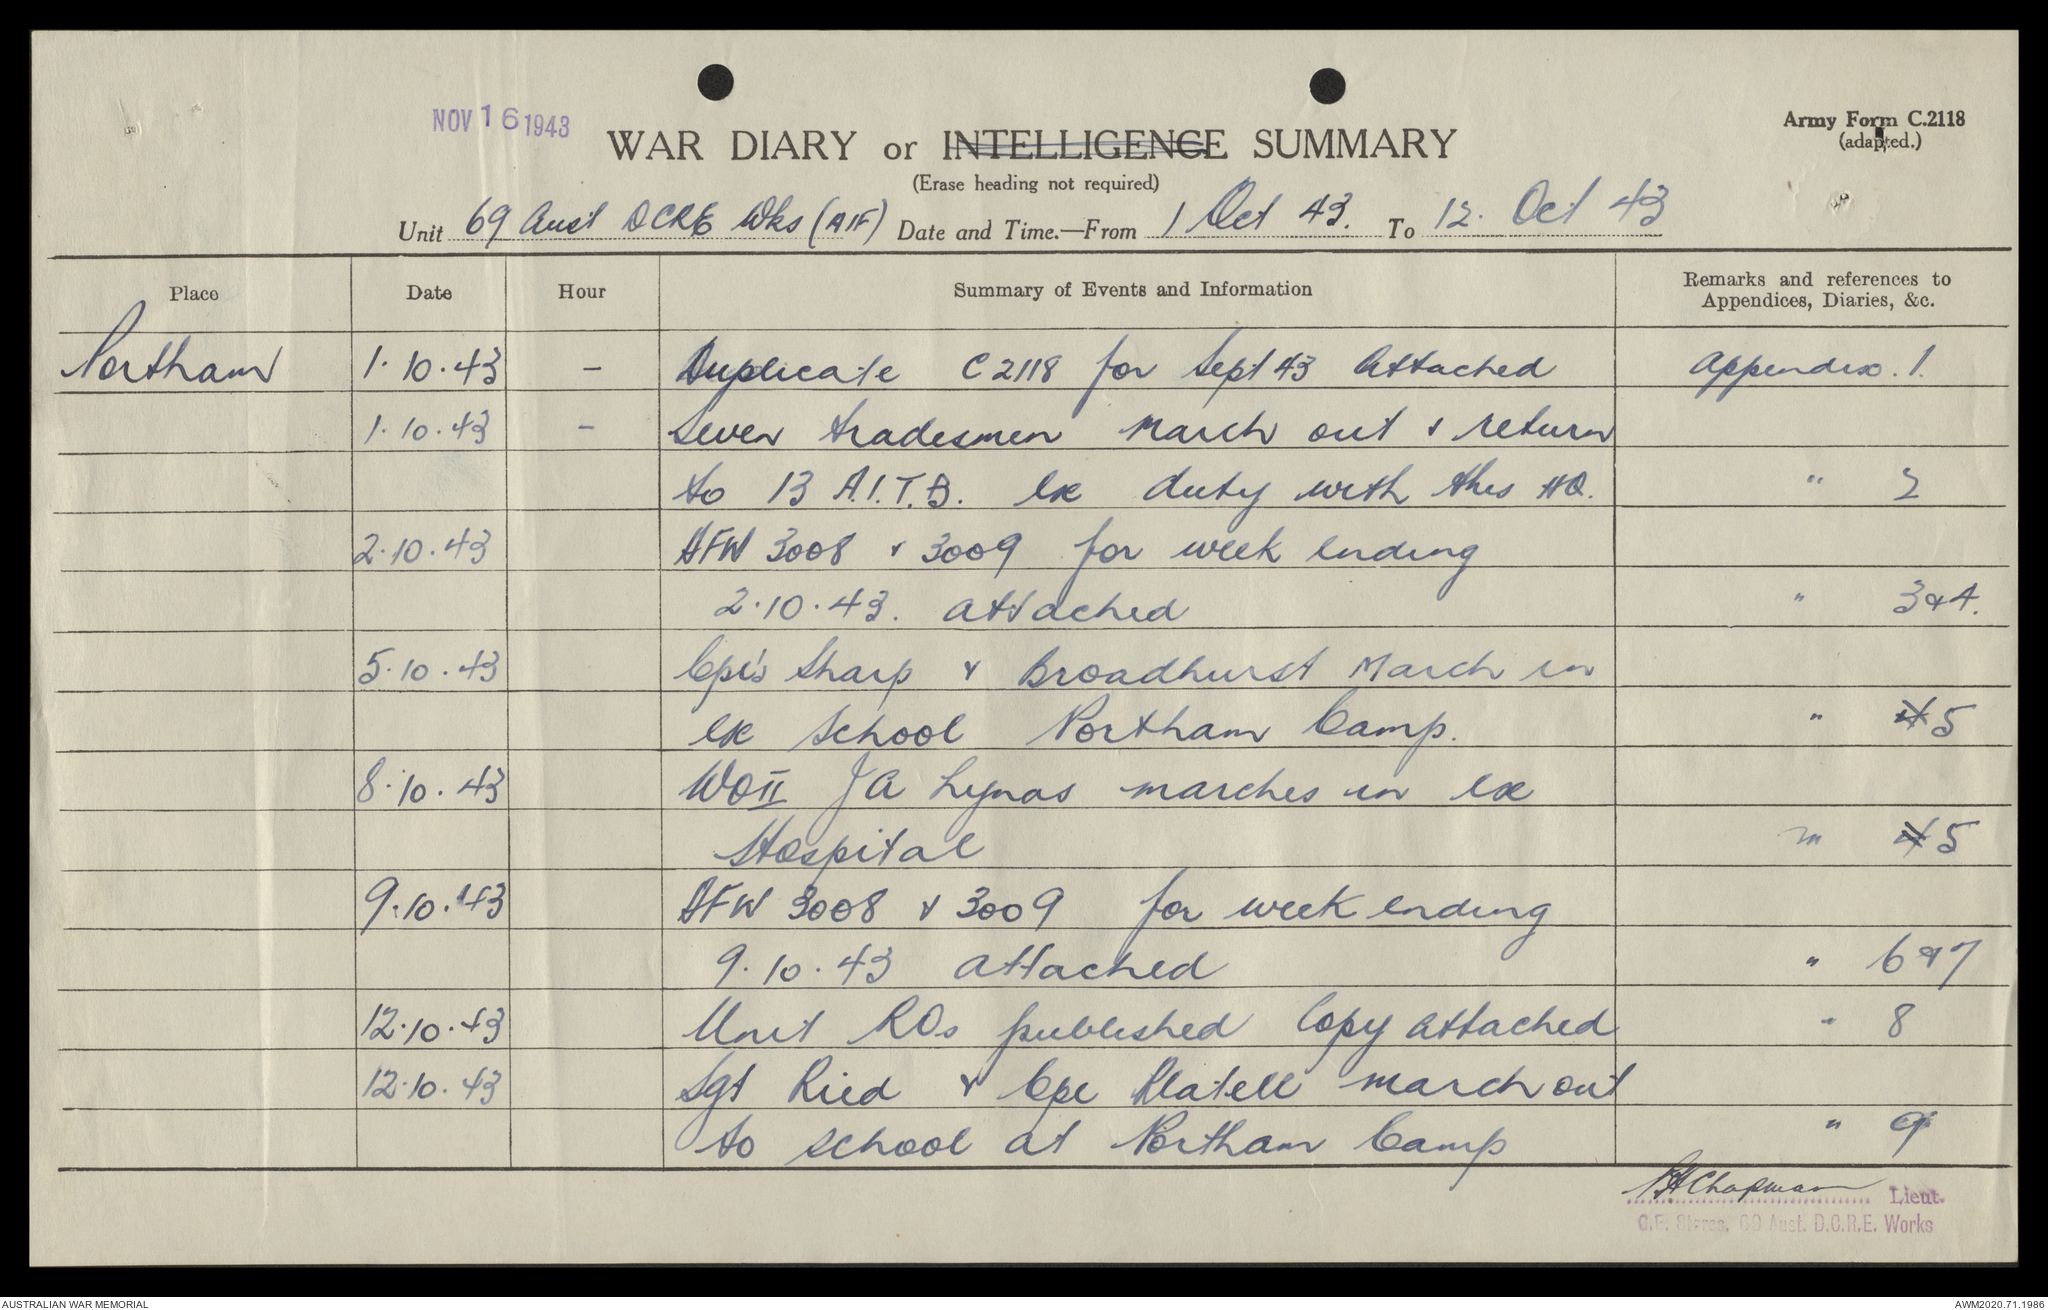 NOV 16 1943
WAR DIARY or INTELLIGENCE SUMMARY
Army Form C.2118
(adapted.)
(Erase heading not required)
Unit 69 Aust DCRE Wks (AIF) Date and Time.—From 1 Oct 43. To 12. Oct 43
Place Date Hour Summary of Events and Information Remarks and references to
Appendices, Diaries, &c.
Northam 1.10.43 - Duplicate C2118 for Sept 43 Attached Appendix. 1.
1.10.43 - Seven tradesmen march out & return
to 13 A.I.T.B. ex duty with this HQ. " 2
2.10.43 AFW 3008 & 3009 for week ending
2.10.43. attached " 3&4.
5.10.43 Cpl's Sharp & Broadhurst March in
ex School Northam Camp. " 4 5
8.10.43 WOII JA Lynas marches in ex
Hospital " 4 5
9.10.43 AFW 3008 & 3009 for week ending
9.10.43 attached " 6&7
12.10.43 Unit ROs published Copy attached " 8
12.10.43 Sgt Ried & Cpl Platell march out
to school at Northam Camp " 9
Chapman Lieut.
Stores. 69 Aust. D.C.R.E. Works
AUSTRALIAN WAR MEMORIAL AWM2020.71.1986